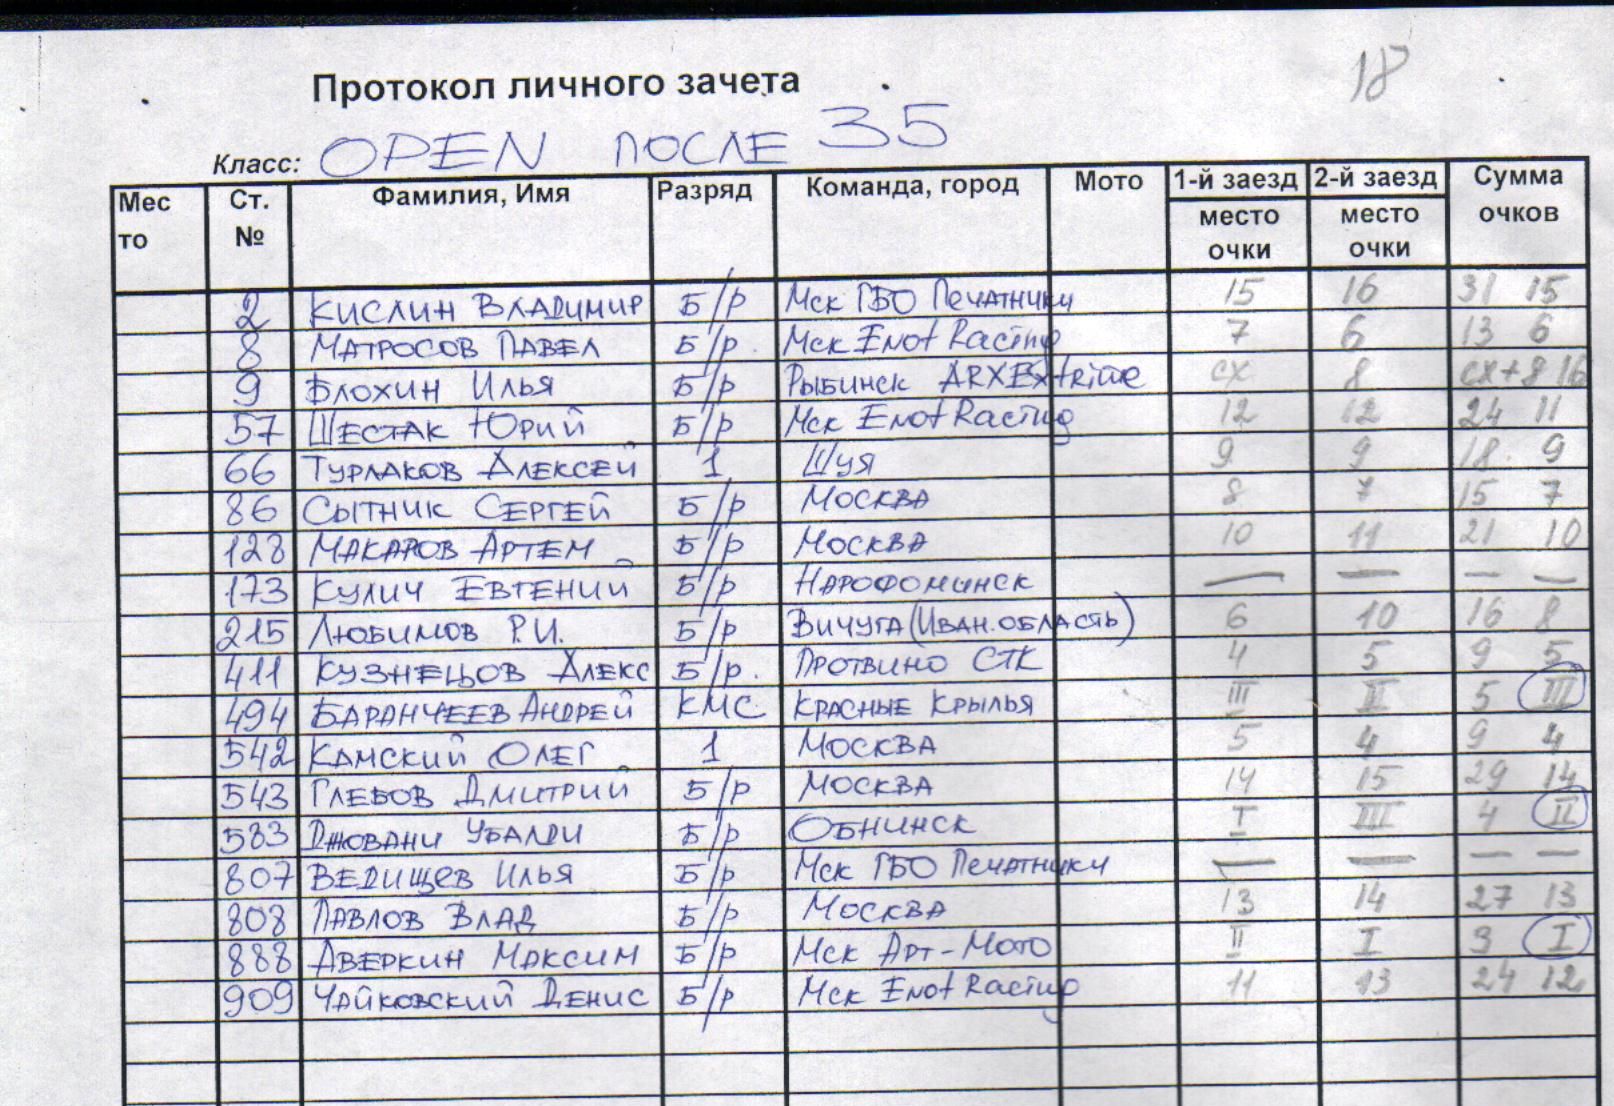 18
Протокол личного зачета
Класс: OPEN ПОСЛЕ 35
Мес то Ст. № Фамилия, Имя Разряд Команда, город Мото 1-й заезд место очки 2-й заезд место очки Сумма очков
2 Кислин Владимир Б/р Мск ГБО Печатники 15 16 31 15
8 Матросов Павел Б/р. Мск Enot Racing 7 6 13 6
9 Блохин Илья Б/р Рыбинск ARXExtrime сх 8 сх+8 16
57 Шестак Юрий Б/р Мск Enot Racing 12 12 24 11
66 Турлаков Алексей 1 Шуя 9 9 18 9
86 Сытник Сергей Б/р Москва 8 7 15 7
128 Макаров Артем Б/р Москва 10 11 21 10
173 Кулич Евгений Б/р Нарофоминск — — — —
215 Любимов Р.И. Б/р Вичуга (Иван. область) 6 10 16 8
411 Кузнецов Алекс Б/р. Протвино СТК 4 5 9 5
494 Баранчеев Андрей КМС Красные Крылья III II 5 III
542 Камский Олег 1 Москва 5 4 9 4
543 Глебов Дмитрий Б/р Москва 14 15 29 14
583 Джовани Убалди Б/р Обнинск I III 4 II
807 Ведищев Илья Б/р Мск ГБО Печатники — — — —
808 Павлов Влад Б/р Москва 13 14 27 13
888 Аверкин Максим Б/р Мск Арт-Мото II I 3 I
909 Чайковский Денис Б/р Мск Enot Racing 11 13 24 12